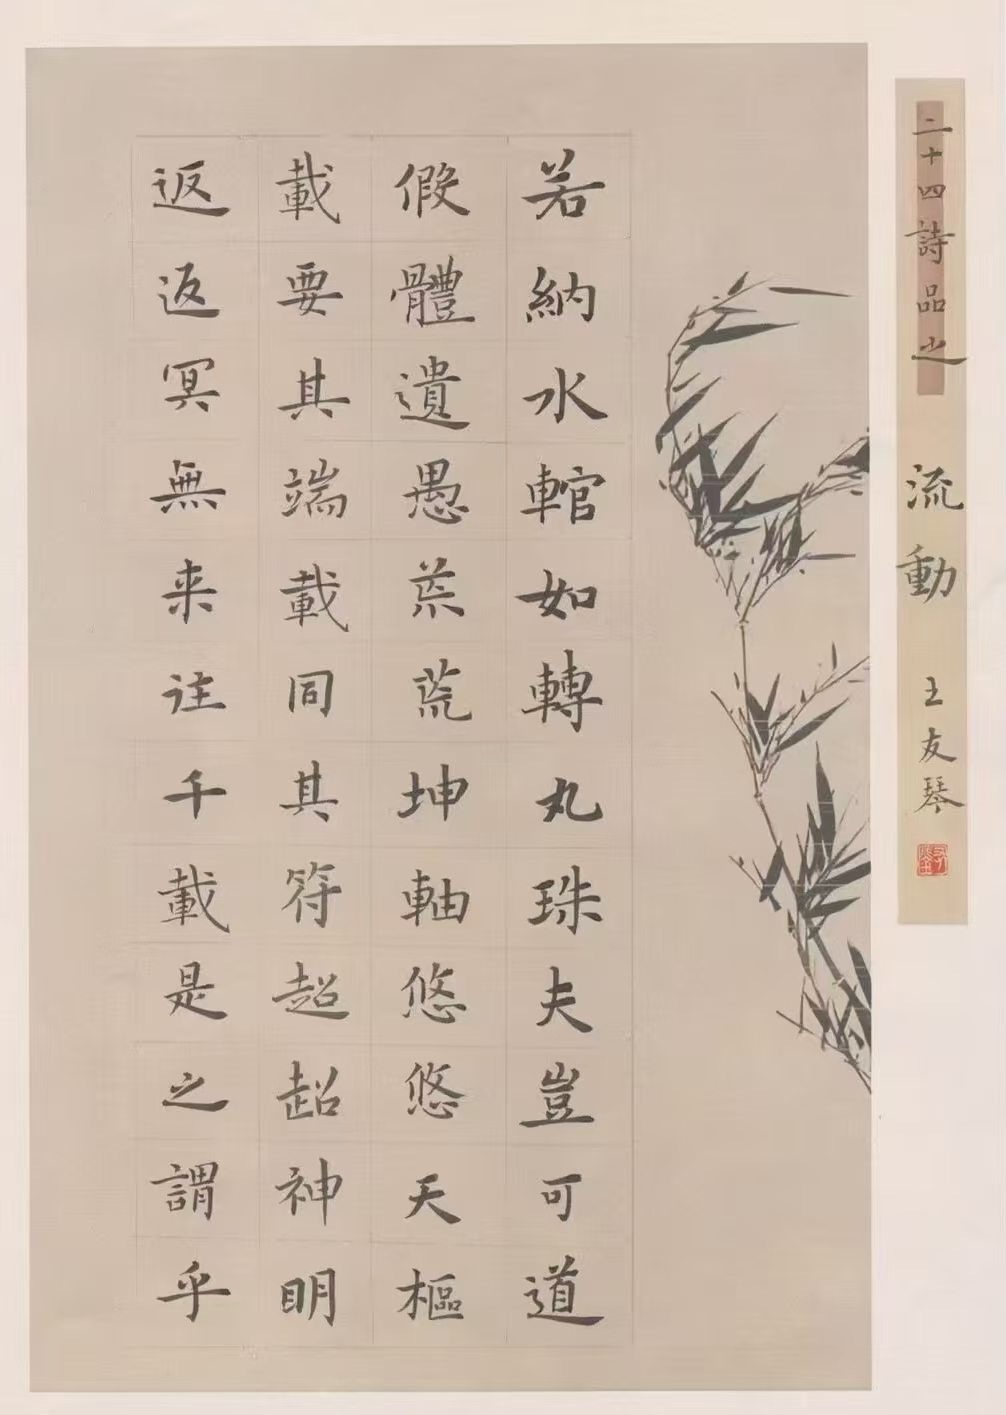 二十四詩品之
流動
王友琴
若納水輨如轉丸珠夫豈可道
假體遺愚荒荒坤軸悠悠天樞
載要其端載同其符超超神明
返返冥無来往千載是之謂乎